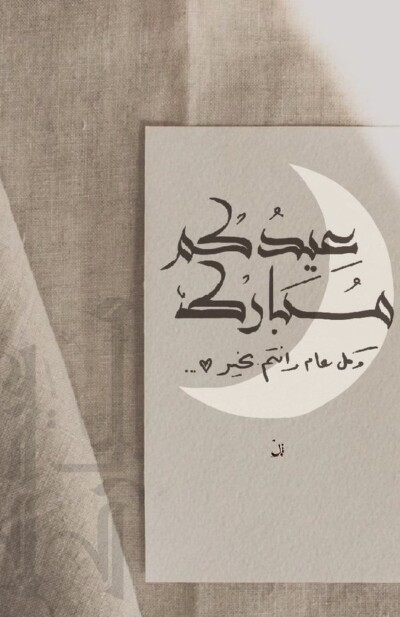 عِيدُكُم
مُبَارَك
وكل عام وانتم بخير ♥...